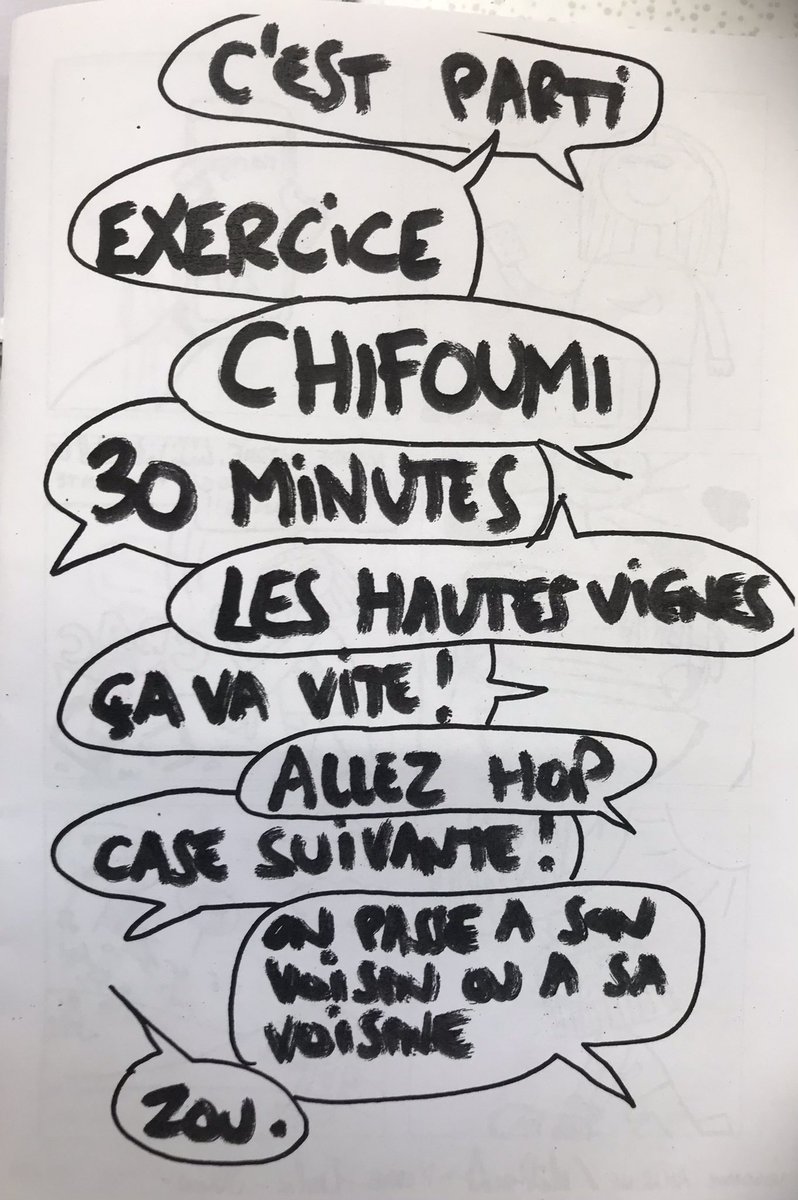 C'EST PARTI
EXERCICE
CHIFOUMI
30 MINUTES
LES HAUTES VIGNES
ÇA VA VITE !
ALLEZ HOP
CASE SUIVANTE !
ON PASSE A SON
VOISIN OU A SA
VOISINE
ZOU.